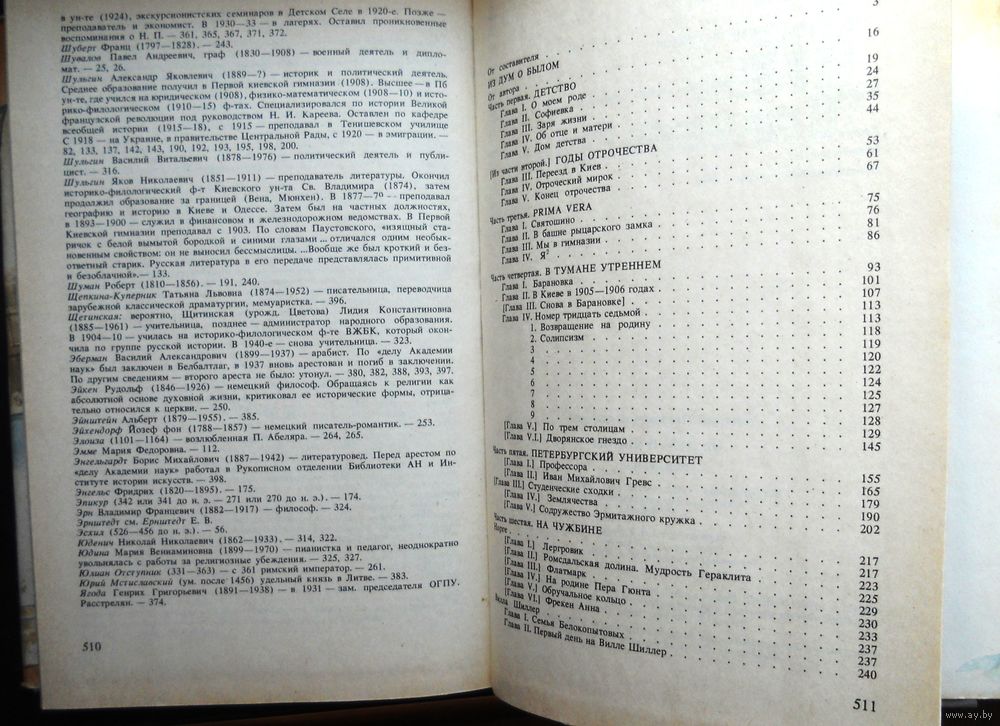 в ун-те (1924), экскурсионистских семинаров в Детском Селе в 1920-е. Позже —
преподаватель и экономист. В 1930—33 — в лагерях. Оставил проникновенные
воспоминания о Н. П. — 361, 365, 367, 371, 372.
Шуберт Франц (1797—1828). — 243.
Шувалов Павел Андреевич, граф (1830—1908) — военный деятель и дипло-
мат. — 25, 26.
Шульгин Александр Яковлевич (1889—?) — историк и политический деятель.
Среднее образование получил в Первой киевской гимназии (1908). Высшее — в Пб
ун-те, где учился на юридическом (1908), физико-математическом (1908—10) и исто-
рико-филологическом (1910—15) ф-тах. Специализировался по истории Великой
французской революции под руководством Н. И. Кареева. Оставлен по кафедре
всеобщей истории (1915—18), с 1915 — преподавал в Тенишевском училище
С 1918 — на Украине, в правительстве Центральной Рады, с 1920 — в эмиграции. —
82, 133, 137, 142, 143, 190, 192, 193, 195, 198, 200.
Шульгин Василий Витальевич (1878—1976) — политический деятель и публи-
цист. — 316.
Шульгин Яков Николаевич (1851—1911) — преподаватель литературы. Окончил
историко-филологический ф-т Киевского ун-та Св. Владимира (1874), затем
продолжил образование за границей (Вена, Мюнхен). В 1877—79 — преподавал
географию и историю в Киеве и Одессе. Затем был на частных должностях,
в 1893—1900 — служил в финансовом и железнодорожном ведомствах. В Первой
Киевской гимназии преподавал с 1903. По словам Паустовского, «изящный ста-
ричок с белой вымытой бородкой и синими глазами ... отличался одним необык-
новенным свойством: он не выносил бессмыслицы. ...Вообще же был кроткий и без-
ответный старик. Русская литература в его передаче представлялась примитивной
и безоблачной».— 133.
Шуман Роберт (1810—1856). — 191, 240.
Щепкина-Куперник Татьяна Львовна (1874—1952) — писательница, переводчица
зарубежной классической драматургии, мемуаристка. — 396.
Щетинская: вероятно, Щитинская (урожд. Цветова) Лидия Константиновна
(1885—1961) — учительница, позднее — администратор народного образования.
В 1904—10 — училась на историко-филологическом ф-те ВЖБК, который окон-
чила по группе русской истории. В 1940-е — снова учительница. — 323.
Эберман Василий Александрович (1899—1937) — арабист. По «делу Академии
наук» был заключен в Белбалтлаг, в 1937 вновь арестован и погиб в заключении.
По другим сведениям — второго ареста не было: утонул. — 380, 382, 388, 393, 397.
Эйкен Рудольф (1846—1926) — немецкий философ. Обращаясь к религии как
абсолютной основе духовной жизни, критиковал ее исторические формы, отрица-
тельно относился к церкви. — 250.
Эйнштейн Альберт (1879—1955). — 385.
Эйхендорф Йозеф фон (1788—1857) — немецкий писатель-романтик. — 253.
Элоиза (1101—1164) — возлюбленная П. Абеляра. — 264, 265.
Эмме Мария Федоровна. — 112.
Энгельгардт Борис Михайлович (1887—1942) — литературовед. Перед арестом по
«делу Академии наук» работал в Рукописном отделении Библиотеки АН и Ин-
ституте истории искусств. — 398.
Энгельс Фридрих (1820—1895). — 175.
Эпикур (342 или 341 до н. э. — 271 или 270 до н. э.). — 174.
Эрн Владимир Францевич (1882—1917) — философ. — 324.
Эрнштедт см. Ернштедт Е. В.
Эсхил (526—456 до н. э.). — 56.
Юденич Николай Николаевич (1862—1933). — 314, 322.
Юдина Мария Вениаминовна (1899—1970) — пианистка и педагог, неоднократно
увольнялась с работы за религиозные убеждения. — 325, 327.
Юлиан Отступник (331—363) — с 361 римский император. — 261.
Юрий Мстиславский (ум. после 1456) удельный князь в Литве. — 383.
Ягода Генрих Григорьевич (1891—1938) — в 1931 — зам. председателя ОГПУ.
Расстрелян. — 374.
510
От составителя 3
ИЗ ДУМ О БЫЛОМ
От автора 16
Часть первая. ДЕТСТВО
Глава I. О моем роде 19
Глава II. Софиевка 24
Глава III. Заря жизни 27
Глава IV. Об отце и матери 35
Глава V. Дом детства 44
[Из части второй.] ГОДЫ ОТРОЧЕСТВА
Глава III. Переезд в Киев 53
Глава IV. Отроческий мирок 61
Глава V. Конец отрочества 67
Часть третья. PRIMA VERA
Глава I. Святошино 75
Глава II. В башне рыцарского замка 76
Глава III. Мы в гимназии 81
Глава IV. Я² 86
Часть четвертая. В ТУМАНЕ УТРЕННЕМ
Глава I. Барановка 93
Глава II. В Киеве в 1905—1906 годах 101
[Глава III. Снова в Барановке] 107
Глава IV. Номер тридцать седьмой 113
1. Возвращение на родину 113
2. Солипсизм 118
3 119
4 120
5 122
6 124
7 125
8 127
9 128
[Глава V.] По трем столицам 129
[Глава V.I.] Дворянское гнездо 145
Часть пятая. ПЕТЕРБУРГСКИЙ УНИВЕРСИТЕТ
[Глава I.] Профессора 155
[Глава II.] Иван Михайлович Гревс 165
[Глава III.] Студенческие сходки 179
[Глава IV.] Землячества 190
[Глава V.] Содружество Эрмитажного кружка 202
Часть шестая. НА ЧУЖБИНЕ
Норге 217
[Глава I.] Лергровик 217
[Глава II.] Ромсдальская долина. Мудрость Гераклита 223
[Глава III.] Флатмарк 225
[Глава IV.] На родине Пера Гюнта 229
[Глава V.] Обручальное кольцо 230
[Глава VI.] Фрекен Анна 233
Вилла Шиллер 237
Глава I. Семья Белокопытовых 237
Глава II. Первый день на Вилле Шиллер 240
511
www.ay.by